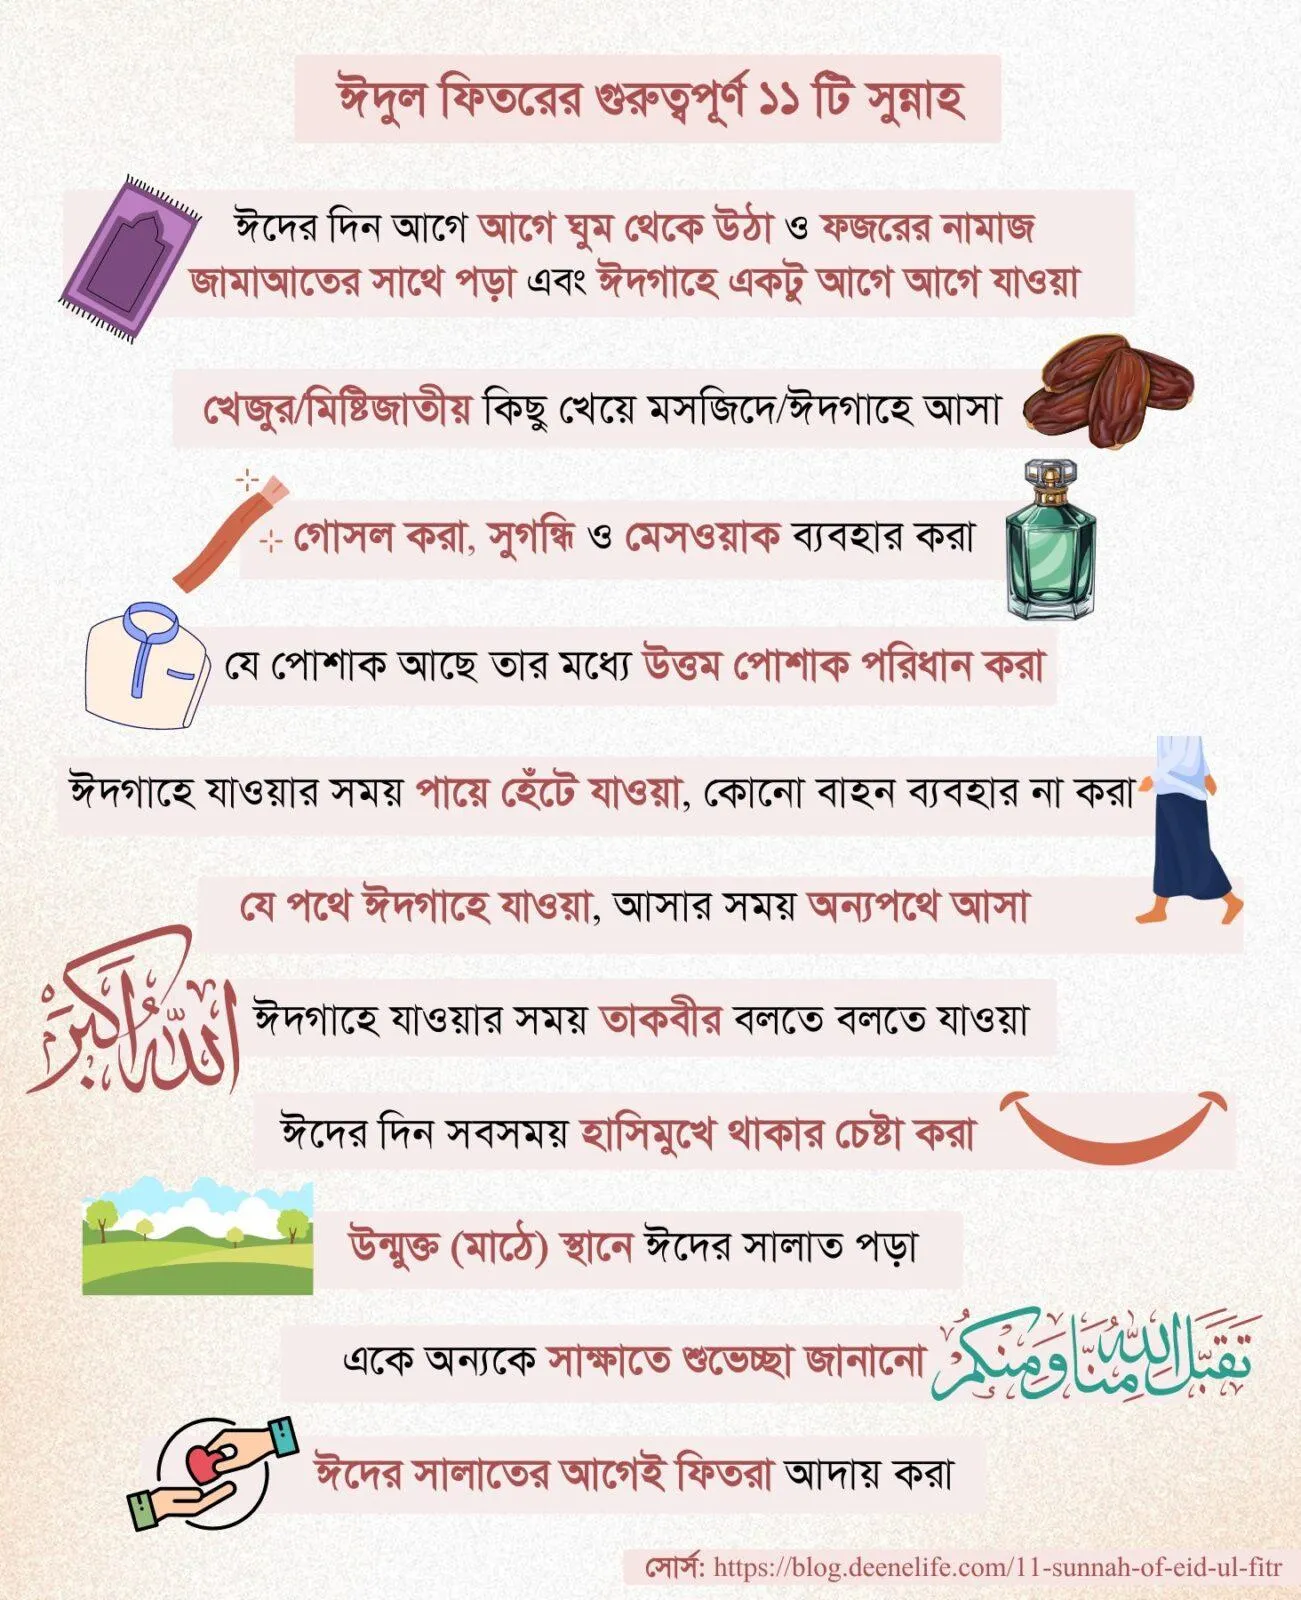 ঈদুল ফিতরের গুরুত্বপূর্ণ ১১ টি সুন্নাহ
ঈদের দিন আগে আগে ঘুম থেকে উঠা ও ফজরের নামাজ
জামাআতের সাথে পড়া এবং ঈদগাহে একটু আগে আগে যাওয়া
খেজুর/মিষ্টিজাতীয় কিছু খেয়ে মসজিদে/ঈদগাহে আসা
গোসল করা, সুগন্ধি ও মেসওয়াক ব্যবহার করা
যে পোশাক আছে তার মধ্যে উত্তম পোশাক পরিধান করা
ঈদগাহে যাওয়ার সময় পায়ে হেঁটে যাওয়া, কোনো বাহন ব্যবহার না করা
যে পথে ঈদগাহে যাওয়া, আসার সময় অন্যপথে আসা
الله أكبر
ঈদগাহে যাওয়ার সময় তাকবীর বলতে বলতে যাওয়া
ঈদের দিন সবসময় হাসিমুখে থাকার চেষ্টা করা
উন্মুক্ত (মাঠে) স্থানে ঈদের সালাত পড়া
একে অন্যকে সাক্ষাতে শুভেচ্ছা জানানো
تَقَبَّلَ اللهُ مِنَّا وَمِنكُم
ঈদের সালাতের আগেই ফিতরা আদায় করা
সোর্স: https://blog.deenelife.com/11-sunnah-of-eid-ul-fitr